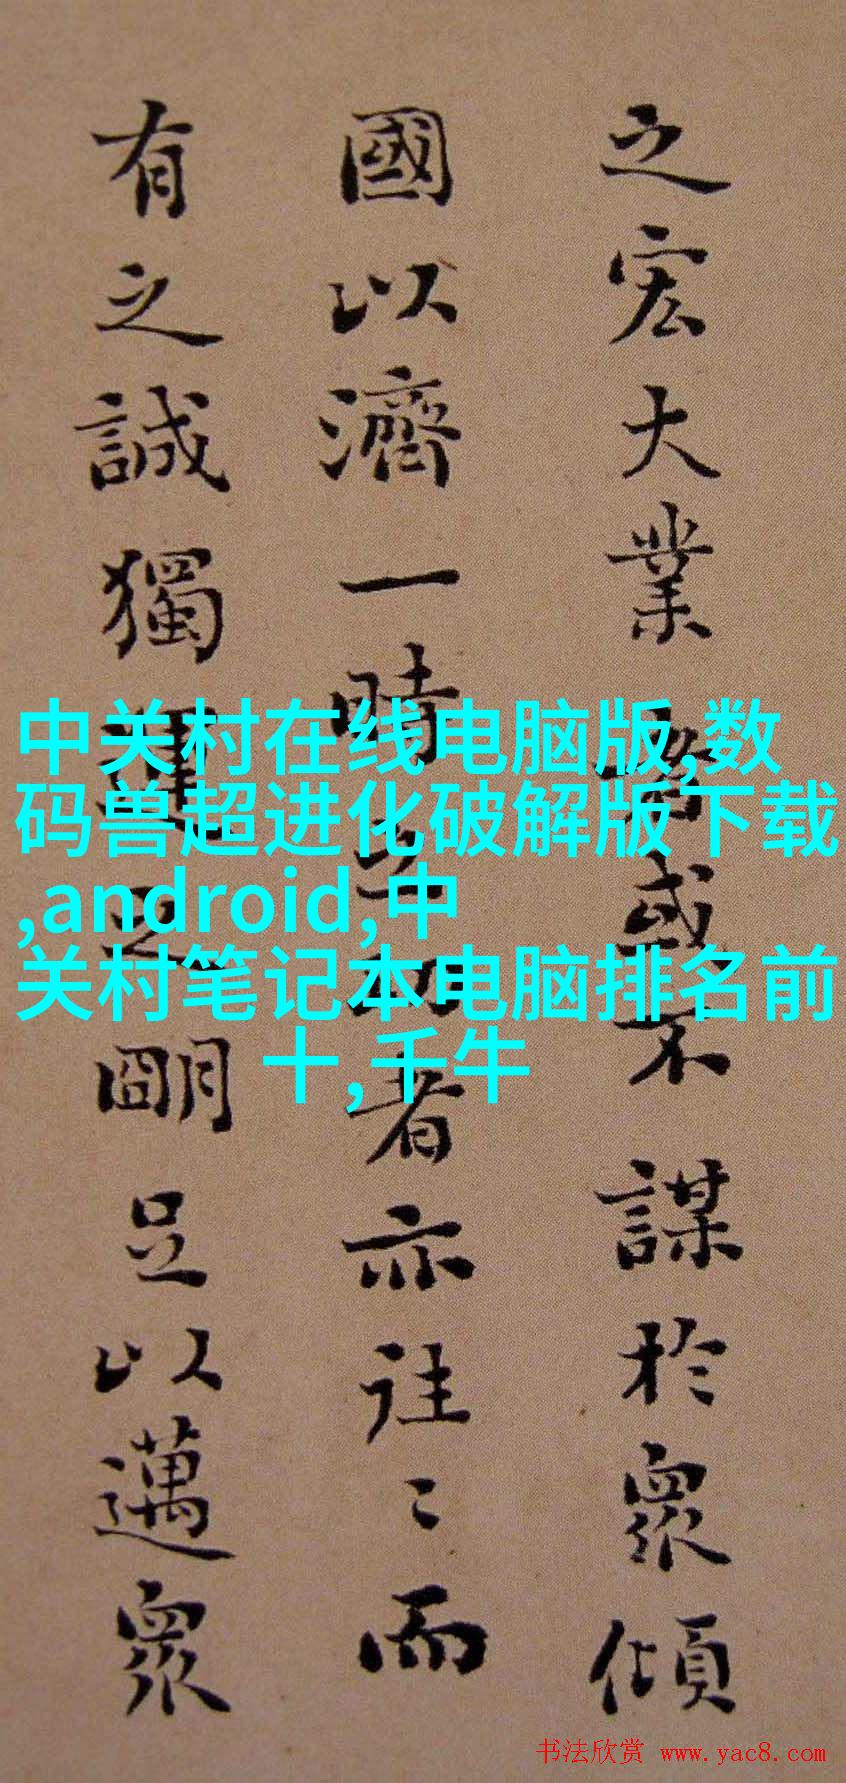 之宏大業
謀於衆傾
國以濟一時
者亦往〻而
有之誠獨
之明足以邁衆
中关村在线电脑版,数
码兽超进化破解版下载
,android,中
关村笔记本电脑排名前
十,千牛
书法欣赏 www.yac8.com